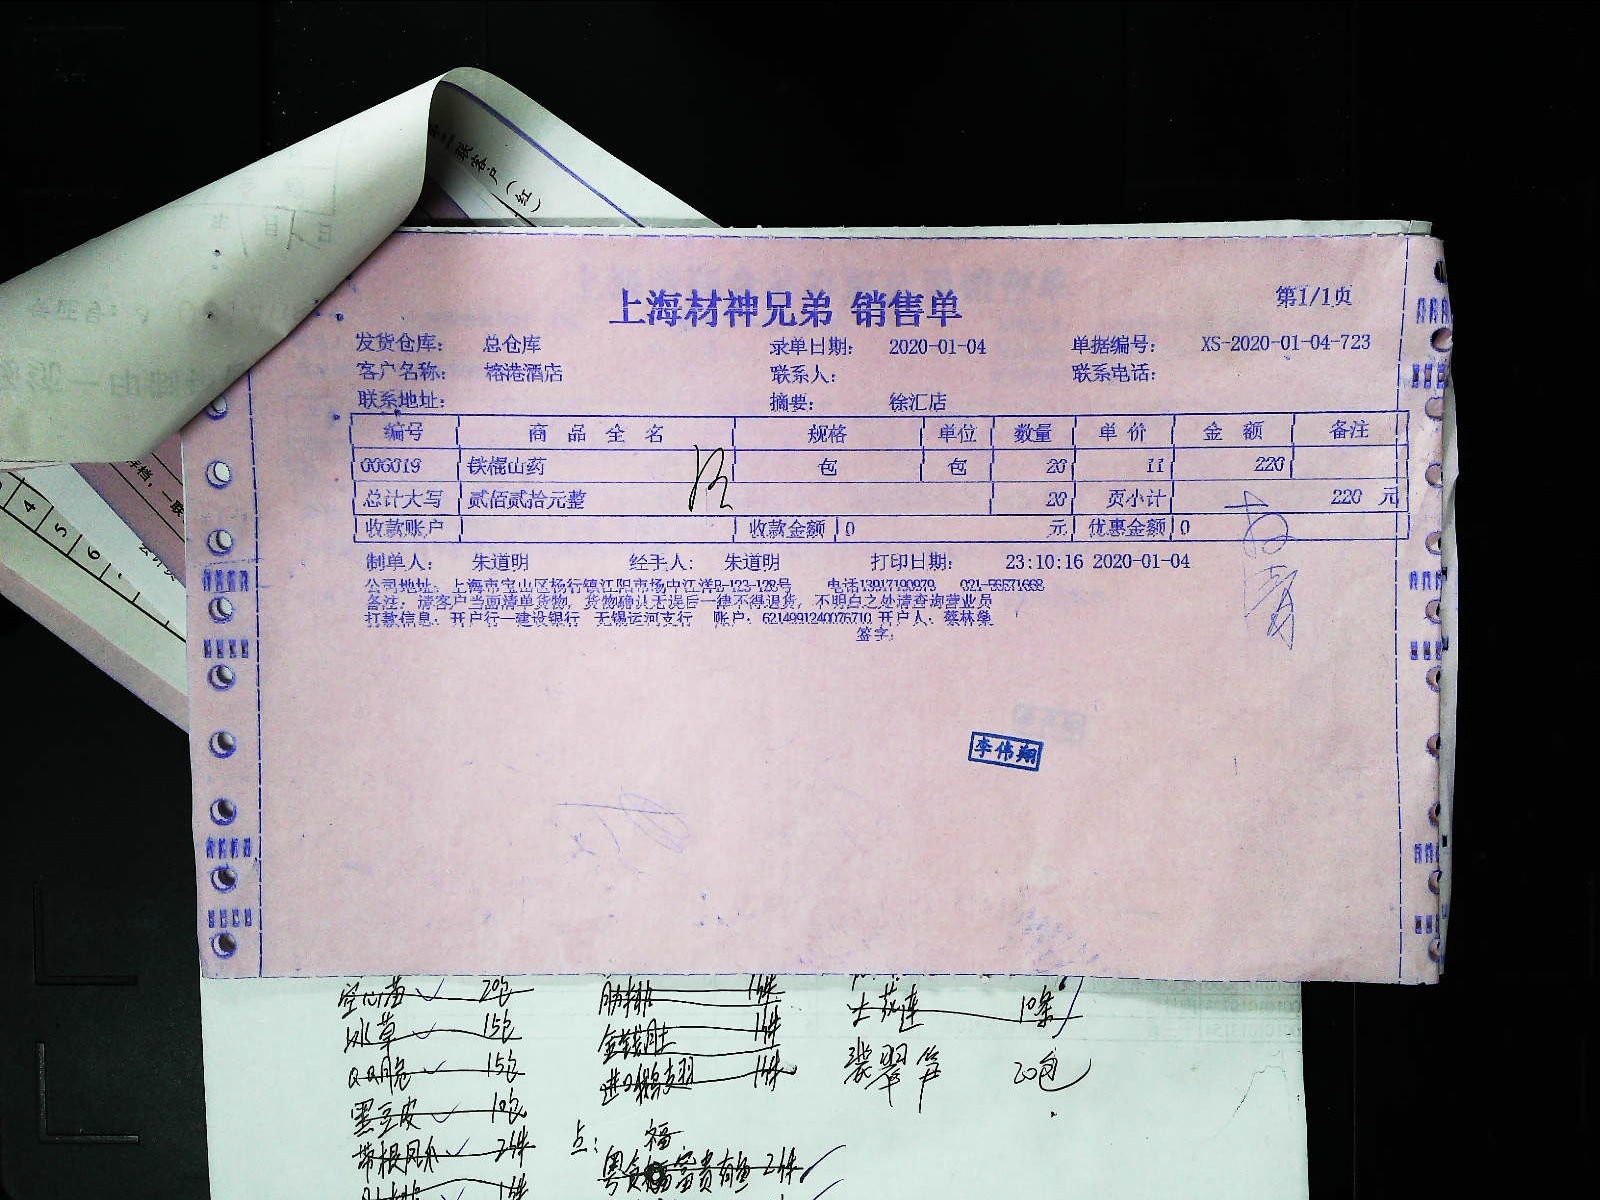 第二联客户(红)
上海材神兄弟 销售单
第1/1页
发货仓库: 总仓库 录单日期: 2020-01-04 单据编号: XS-2020-01-04-723
客户名称: 榕港酒店 联系人: 联系电话:
联系地址: 摘要: 徐汇店
编号 商品全名 规格 单位 数量 单价 金额 备注
006019 铁棍山药 包 包 20 11 220
总计大写 贰佰贰拾元整 20 页小计 220 元
收款账户 收款金额 0 元 优惠金额 0
制单人: 朱道明 经手人: 朱道明 打印日期: 23:10:16 2020-01-04
公司地址: 上海市宝山区杨行镇江阳市场中江洋B-123-128号 电话13917190979
备注: 请客户当面清单货物, 货物确认无误后一律不得退货, 不明白之处请查询营业员
打款信息: 开户行—建设银行 无锡运河支行 账户: 6214991240076710 开户人: 蔡林燊
签字:
李伟翔
4 5 6
20包 1件 10条
冰草 15包 金钱肚 1件
15包 1件 20包
黑豆皮 10包
2件 点: 福
富贵有鱼 2件
1件